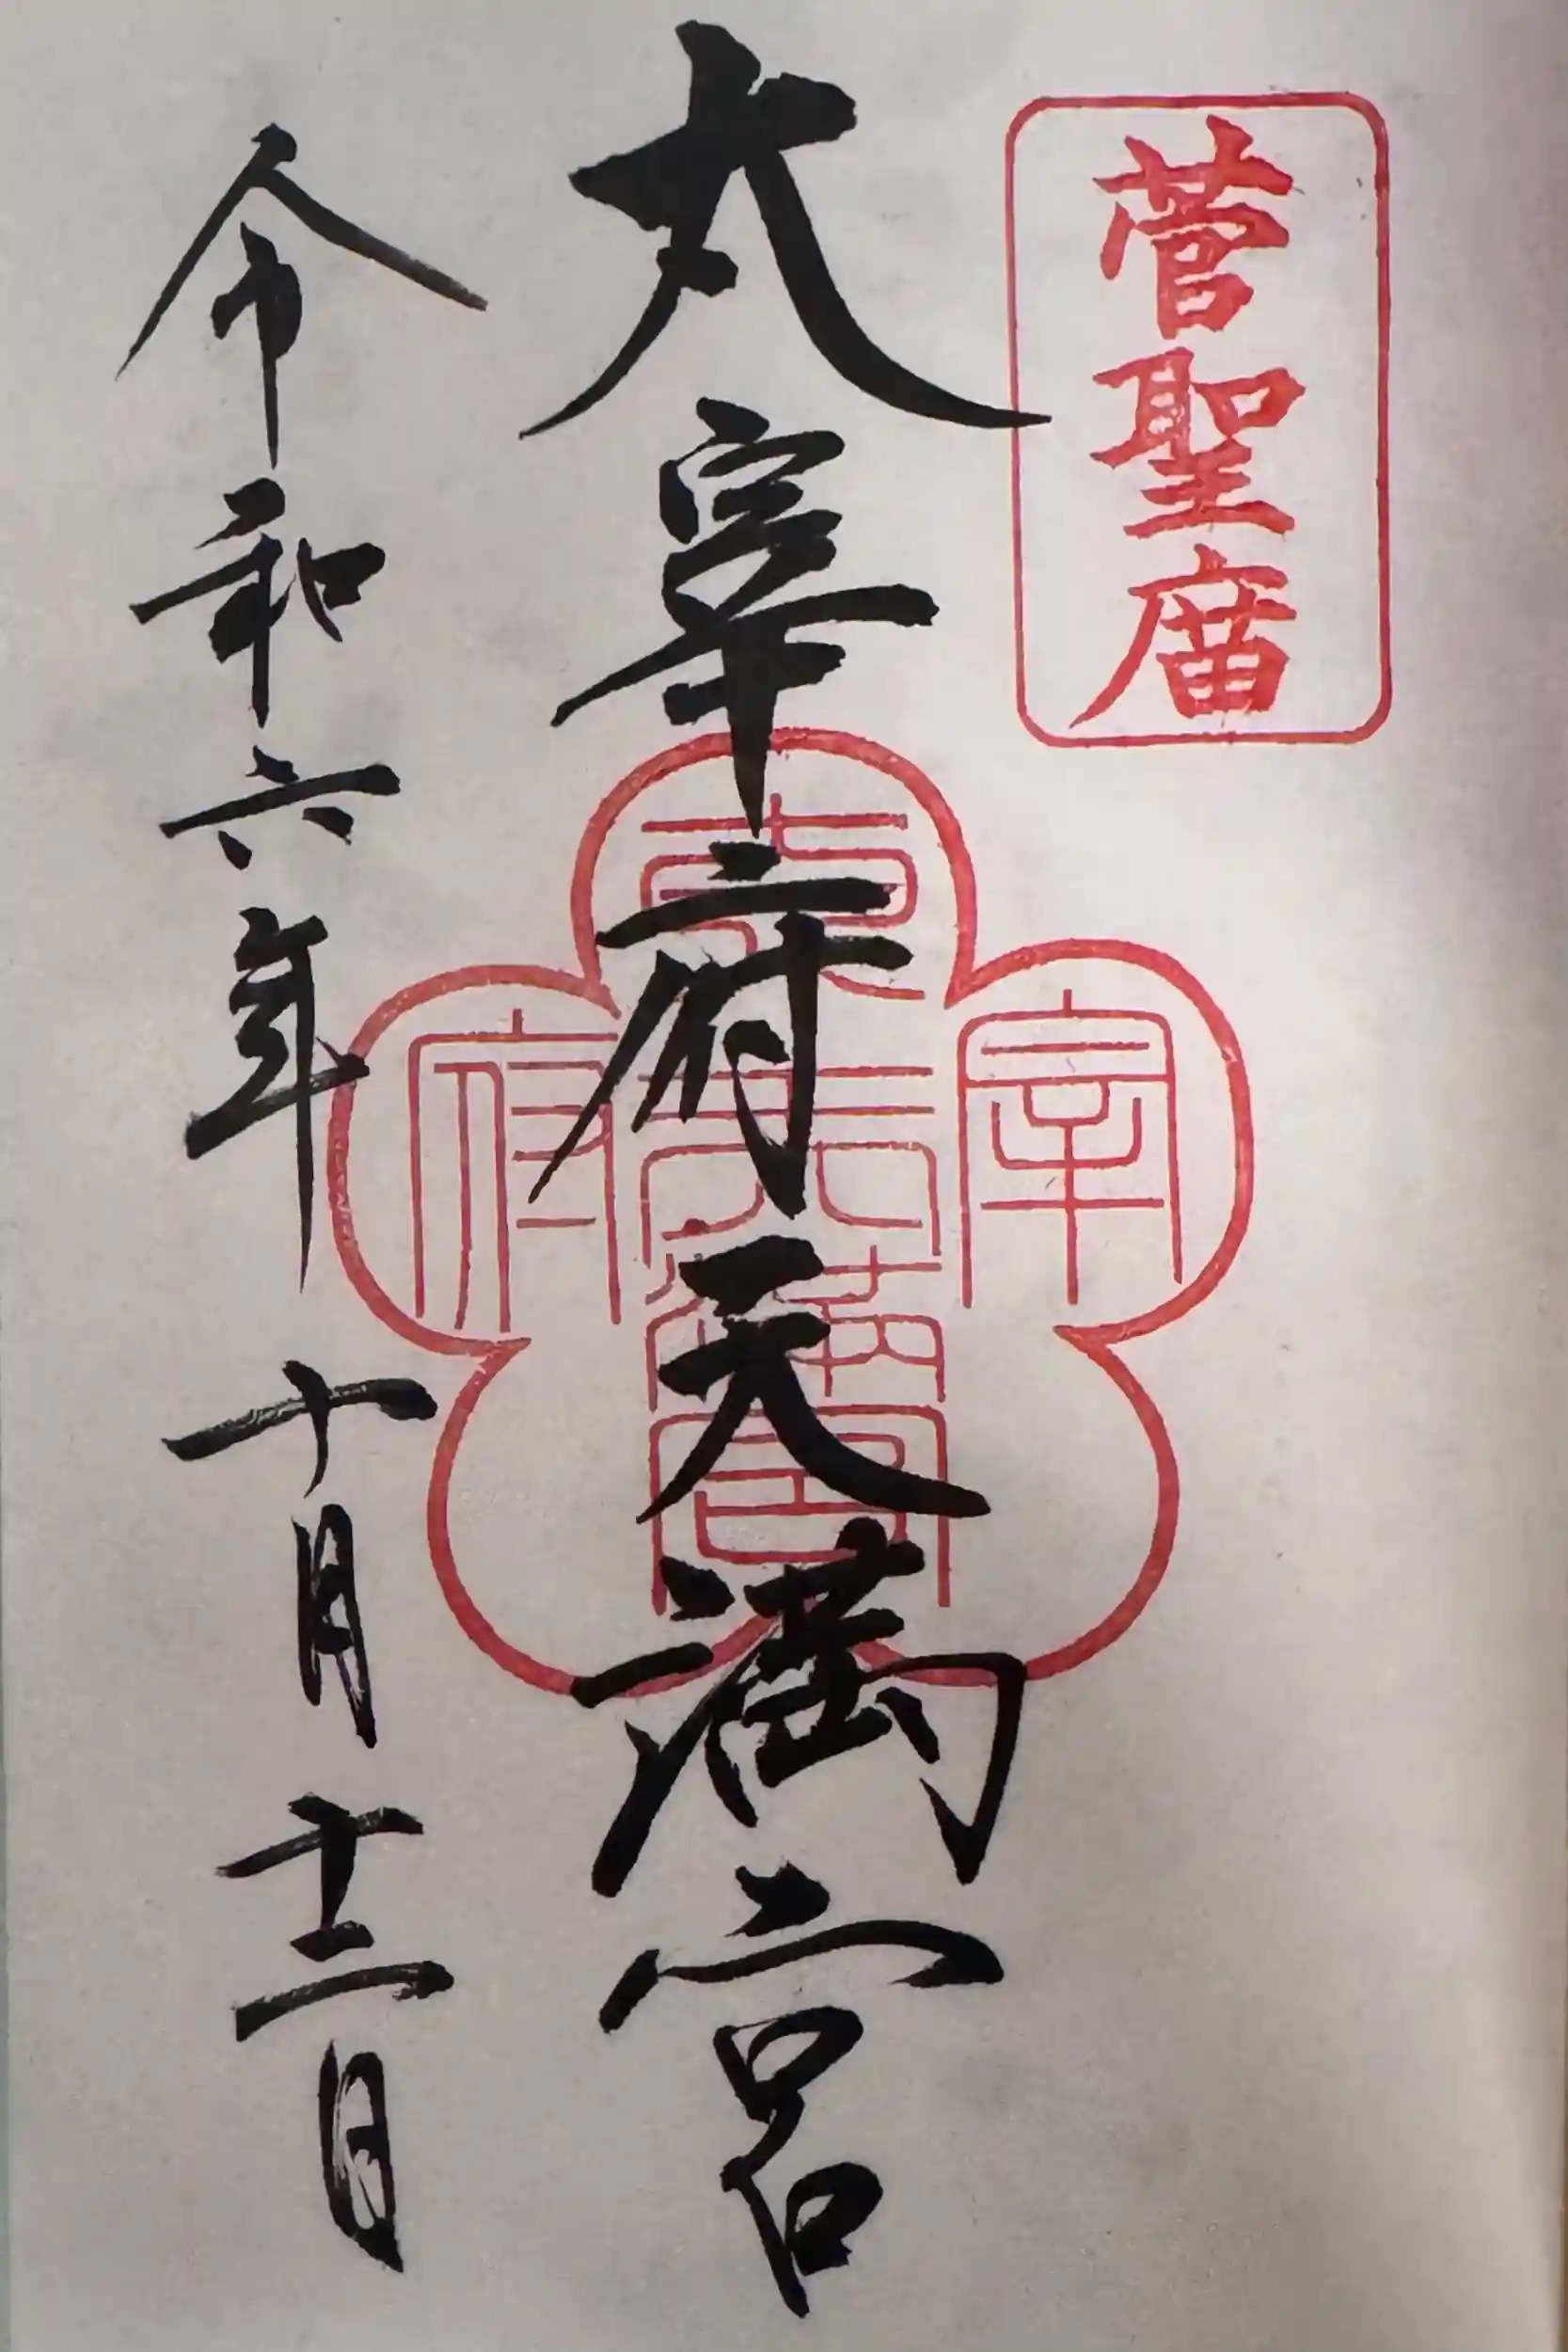 菅聖庿
太宰府天満宮
宰府
天満宮
令和六年十月十二日